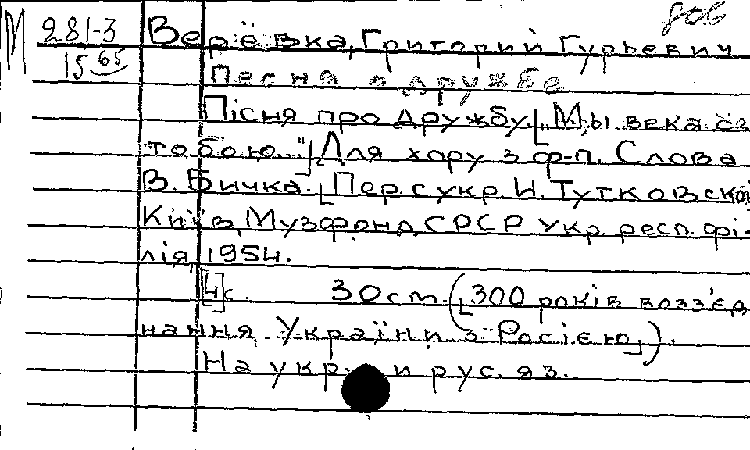 М 281-3
15 65
806
Верёвка, Григорий Гурьевич
Песня о дружбе
Пісня про дружбу. [„Мы века с
тобою..."] Для хору з ф-п. Слова
В. Бичка. [Пер. с укр. И. Тутковской
Київ, Музфонд СРСР Укр. респ. фі-
лія, 1954.
[4]с. 30 cm. ([300 років возз'єд-
нання України з Росією]).
На укр. и рус. яз.